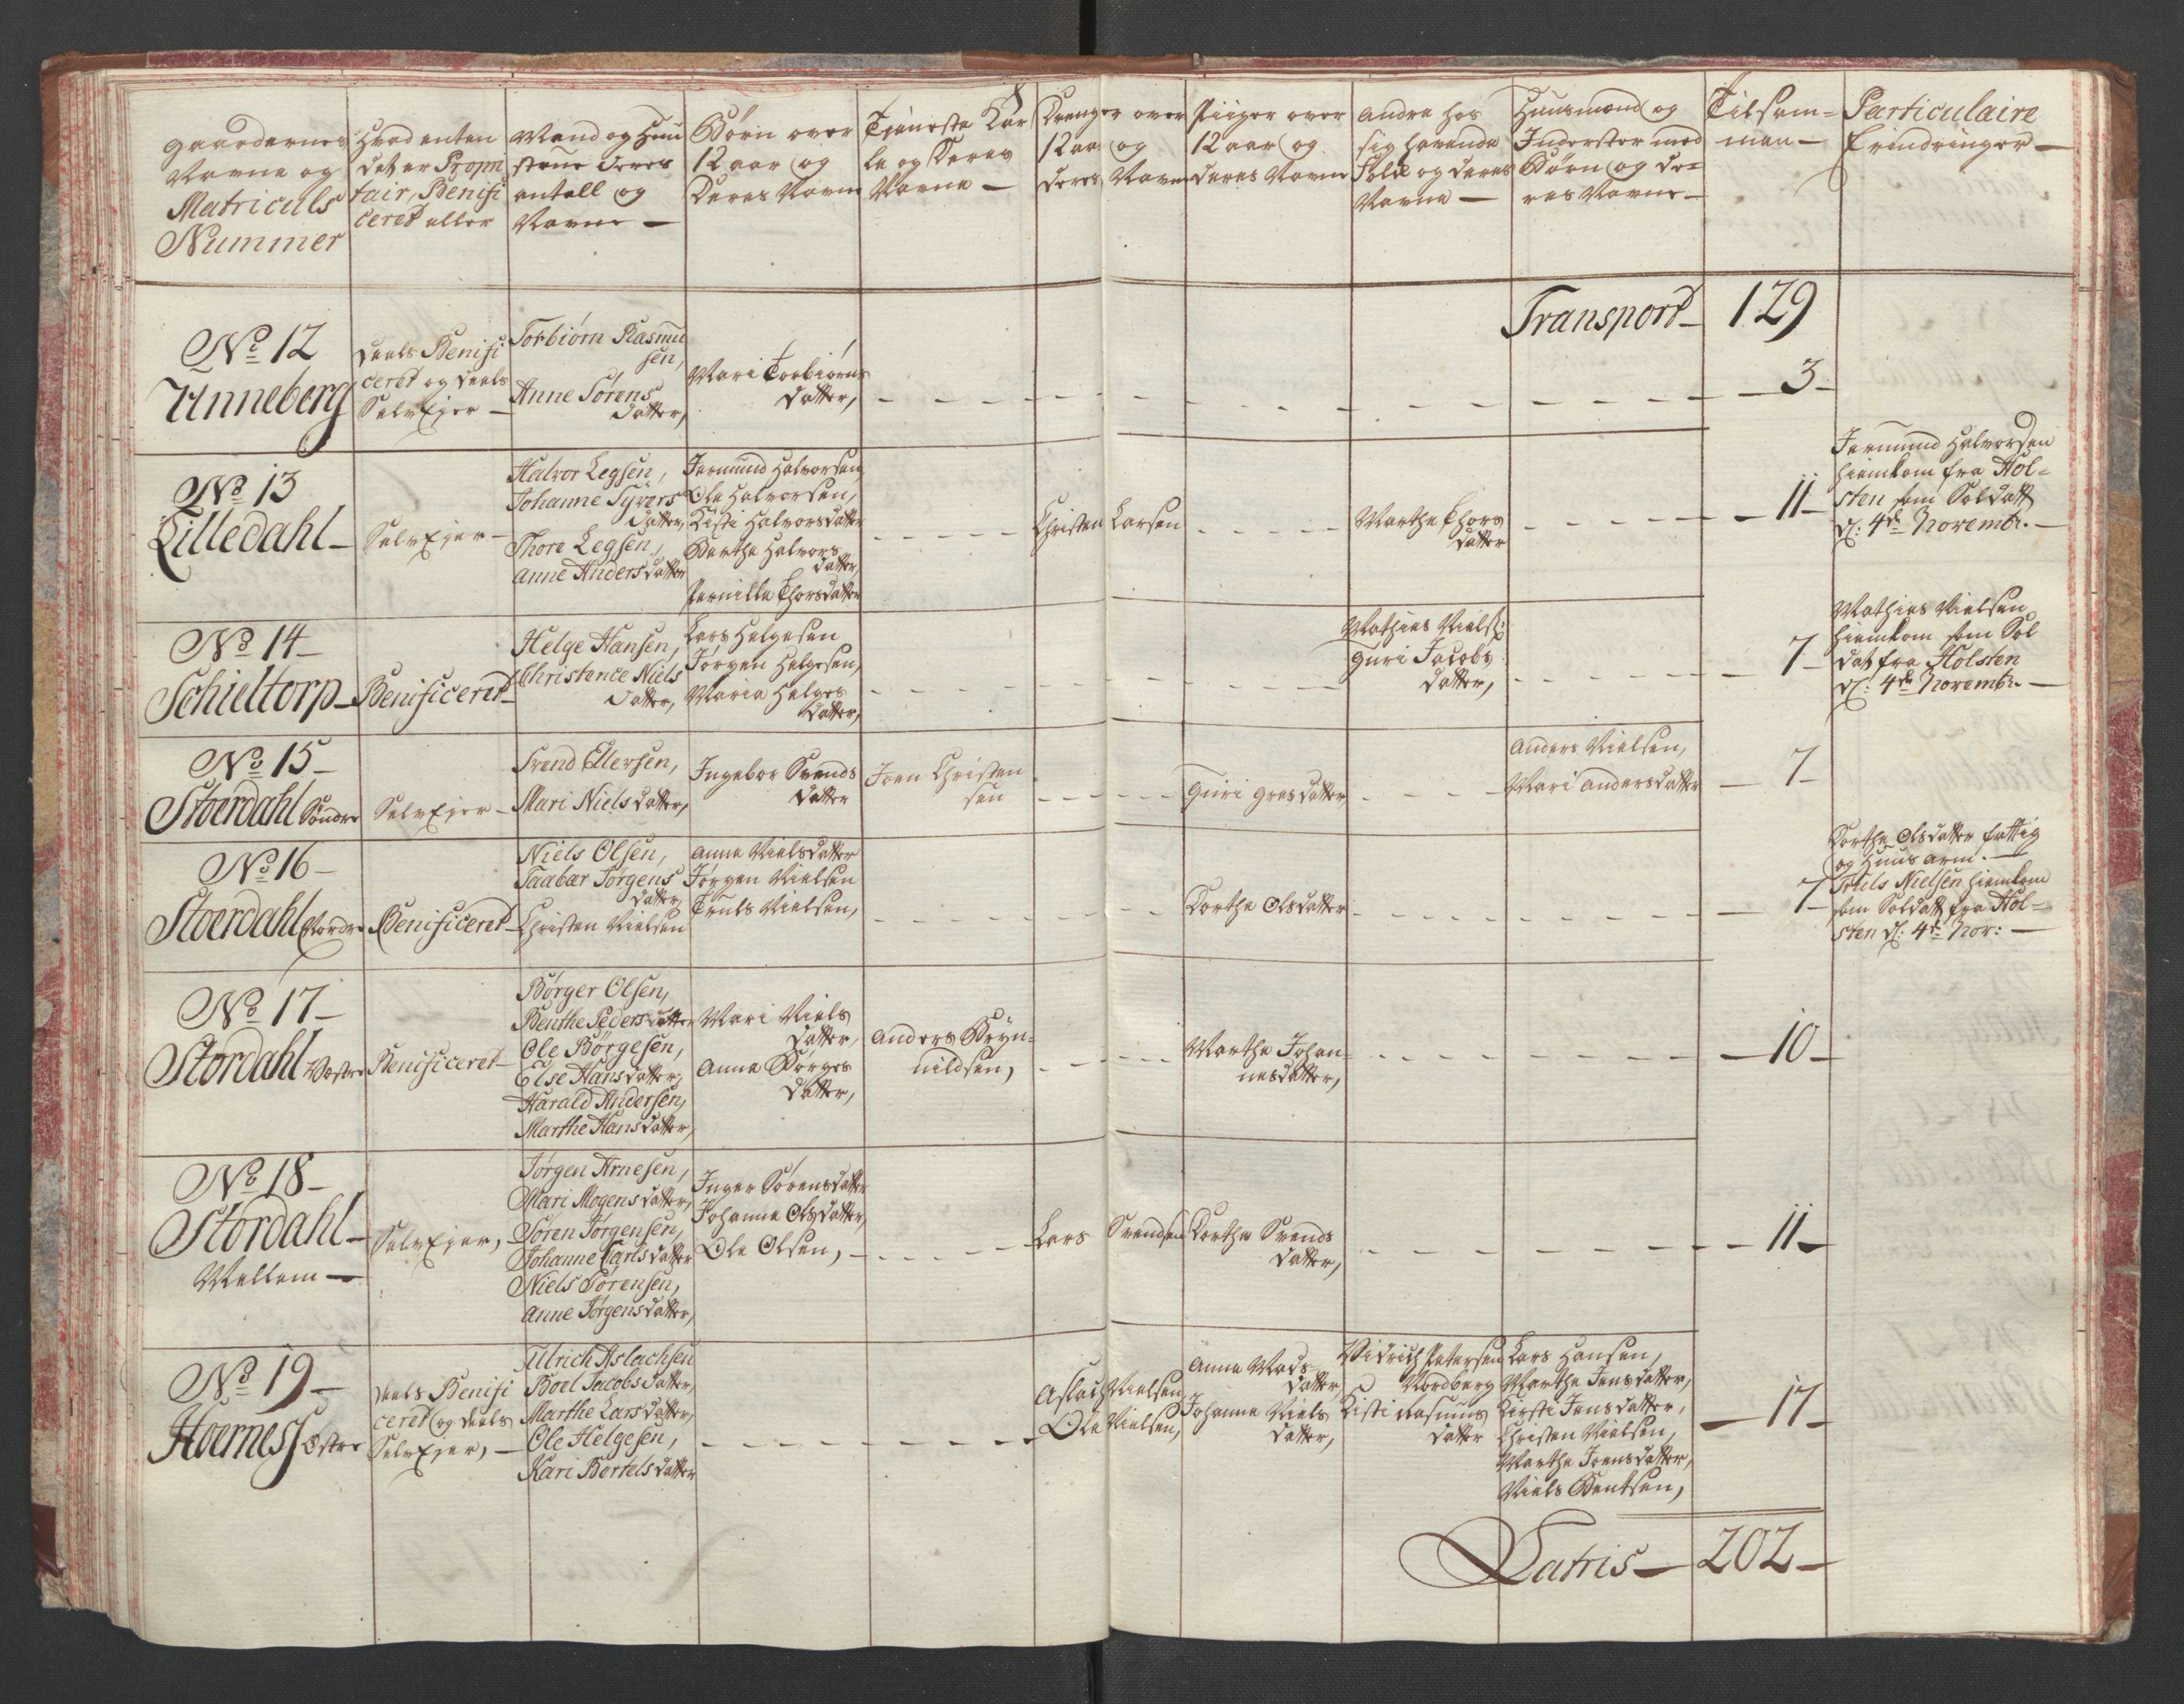 Gaardernes
Navne og
Matriculs
Nummer
Hvad enten
det er Propri
tair, Benifi
ceret eller
Mand og Huu
strue deres
antall og
Navne —
Børn over
12 aar og
Deres Navne
Tjeneste Kar
le og Deres
Navne —
Drenger over
12 aar og
deres Navne
Piiger over
12 aar og
deres Navne
Andre hos
sig havende
Folk og deres
Navne —
Huusmænd og
Inderster med
Børn og De=
res Navne —
Tilsam=
men —
Particulaire
Erindringer —
Transport — 129
No 12
Unneberg
Deels Benifi
ceret og deels
SelvEjer —
Torbiørn Rasmu
sen,
Anne Sørens
datter,
Mari Torbiørns
datter,
— 3 —
No 13
Lilledahl —
SelvEjer —
Halvor Legsen,
Johanne Syvers
datter,
Thore Legsen,
Anne Andersdatter
Jermund Halvorsen,
Ole Halvorsen,
Kisti Halvorsdatter
Berthe Halvors
datter,
Pernille Thorsdatter
Christen Larsen
Marthe Thors
datter
— 11 —
Jermund Halvorsen
hiemkom fra Hol=
sten som Soldatt
d: 4de Novembr. —
No 14 —
Schieltorp —
Benificeret —
Helge Hansen,
Christence Niels
datter,
Lars Helgesen
Jørgen Helgesen,
Maria Helges
datter,
Mathies Niels:
Guri Jacobs
datter,
— 7 —
Mathies Nielsen
hiemkom som Sol
dat fra Holsten
d: 4de Novembr. —
No 15 —
Stoerdahl Søndre
SelvEjer —
Svend Ellersen,
Mari Nielsdatter,
Ingebor Svends
datter
Joen Christen
sen
Guri Gresdatter
Anders Nielsen,
Mari Andersdatter
— 7 —
No 16 —
Stoerdahl Nordre
Benificeret —
Niels Olsen,
Taabær Jørgens
datter,
Christen Nielsen
Anne Nielsdatter
Jørgen Nielsen
Truls Nielsen,
Dorthe Olsdatter
— 7 —
Dorthe Olsdatter fattig
og Huusarm. —
Truls Nielsen hiemkom
som Soldatt fra Hol=
sten d: 4de Nov: —
No 17 —
Stordahl Vestre
Benificeret —
Børger Olsen,
Benthe Pedersdatter
Ole Børgesen,
Else Hansdatter,
Harald Andersen,
Marthe Hansdatter,
Mari Niels
datter,
Anne Børges
datter,
Anders Bryn=
nildsen,
Marthe Johan=
nesdatter,
— 10 —
No 18 —
Stordahl —
Mellem —
SelvEjer,
Jørgen Arnesen,
Mari Mogensdatter,
Søren Jørgensen,
Johanne Carlsdatter
Niels Sørensen,
Anne Jørgensdatter,
Inger Sørensdatter
Johanne Olsdatter,
Ole Olsen,
Lars Svendsen
Dorthe Svends
datter,
— 11 —
No 19 —
Hoerness Østre
Deels Benifi
ceret og deels
SelvEjer, —
Ulrich Aslachsen
Boel Jacobsdatter,
Marthe Larsdatter,
Ole Helgesen,
Kari Bertelsdatter
Aslach Nielsen,
Ole Nielsen,
Anne Mads=
datter,
Johanne Niels
datter,
Didrich Petersen
Nordberg
Kisti Rasmus
datter
Lars Hansen,
Marthe Jensdatter,
Kirsti Jensdatter,
Christen Nielsen,
Marthe Joensdatter,
Niels Bentsen,
— 17 —
Latris — 202 —